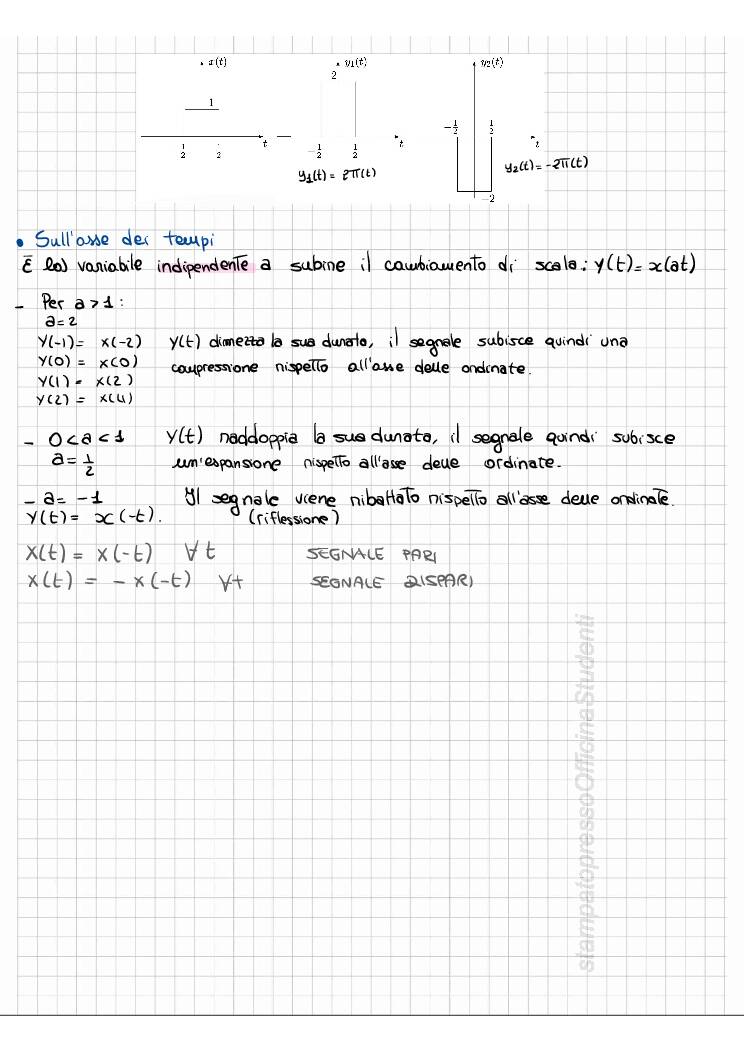 x(t) y₁(t) y₂(t)
2
1
-1/2 1/2
t t t
1/2 1/2 -1/2 1/2
y₁(t) = 2π(t) y₂(t) = -2π(t)
-2
• Sull'asse dei tempi
È la variabile indipendente a subire il cambiamento di scala: y(t) = x(at)
- Per a > 1:
a = 2
y(-1) = x(-2) y(t) dimezza la sua durata, il segnale subisce quindi una
y(0) = x(0) compressione rispetto all'asse delle ordinate.
y(1) = x(2)
y(2) = x(4)
- 0 < a < 1 y(t) raddoppia la sua durata, il segnale quindi subisce
a = 1/2 un'espansione rispetto all'asse delle ordinate.
- a = -1 Il segnale viene ribaltato rispetto all'asse delle ordinate.
y(t) = x(-t). (riflessione)
x(t) = x(-t) ∀t SEGNALE PARI
x(t) = -x(-t) ∀t SEGNALE DISPARI
stampatopressoOfficinaStudenti